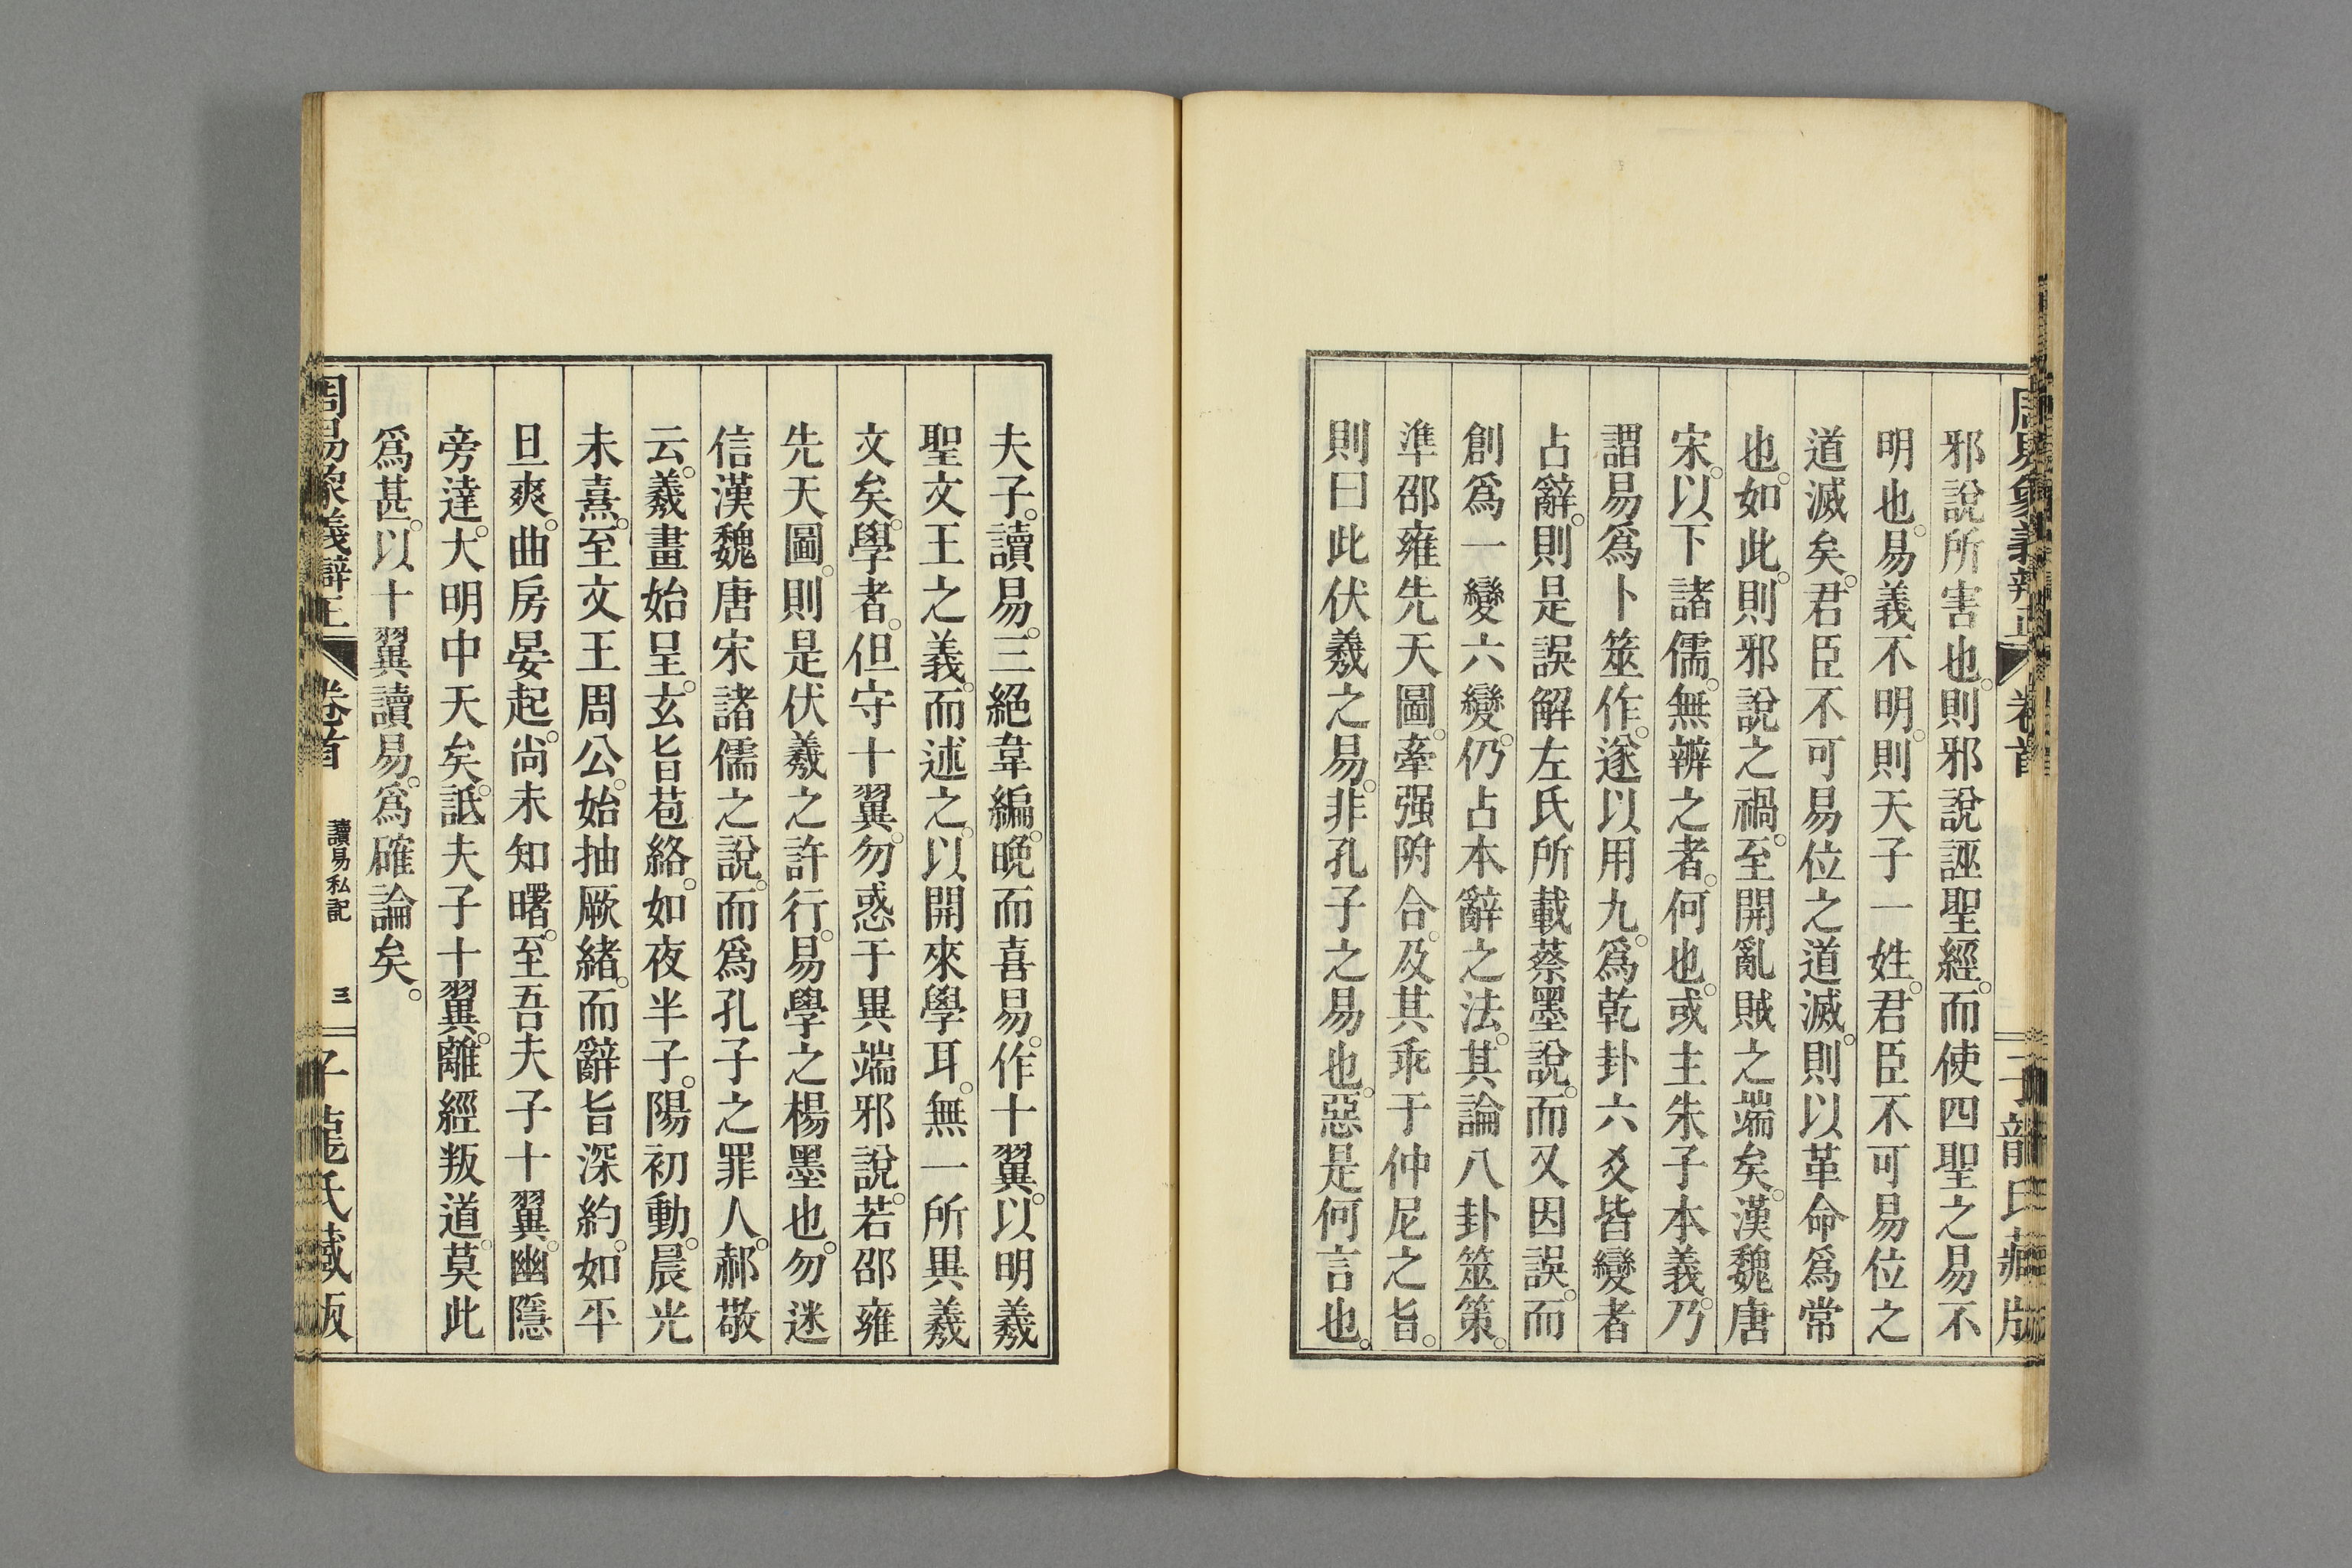 周易象義辯正 卷首 子龍氏藏版
邪說所害也。則邪說誣聖經。而使四聖之易不
明也。易義不明。則天子一姓。君臣不可易位之
道滅矣。君臣不可易位之道滅。則以革命爲常
也。如此。則邪說之禍。至開亂賊之端矣。漢魏唐
宋。以下諸儒。無辨之者。何也。或主朱子本義。乃
謂易爲卜筮作。遂以用九。爲乾卦六爻皆變者
占辭。則是誤解左氏所載蔡墨說。而又因誤。而
創爲一變六變。仍占本辭之法。其論八卦筮策。
準邵雍先天圖。牽强附合。及其乖于仲尼之旨。
則曰此伏羲之易。非孔子之易也。惡是何言也。
夫子。讀易。三絕韋編。晚而喜易。作十翼。以明羲
聖文王之義。而述之。以開來學耳。無一所異羲
文矣。學者。但守十翼。勿惑于異端邪說。若邵雍
先天圖。則是伏羲之許行。易學之楊墨也。勿迷
信漢魏唐宋諸儒之說。而爲孔子之罪人。郝敬
云。羲畫始呈。玄旨苞絡。如夜半子。陽初動。晨光
未熹。至文王周公。始抽厥緒。而辭旨深約。如平
旦爽。曲房晏起。尚未知曙。至吾夫子十翼。幽隱
旁達。大明中天矣。詆夫子十翼。離經叛道。莫此
爲甚。以十翼讀易。爲確論矣。
周易象義辯正 卷首 讀易私記 三 子龍氏藏版